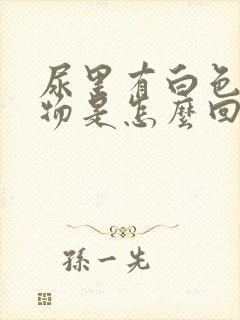 尿里有白色
物是怎麼回
孫一先